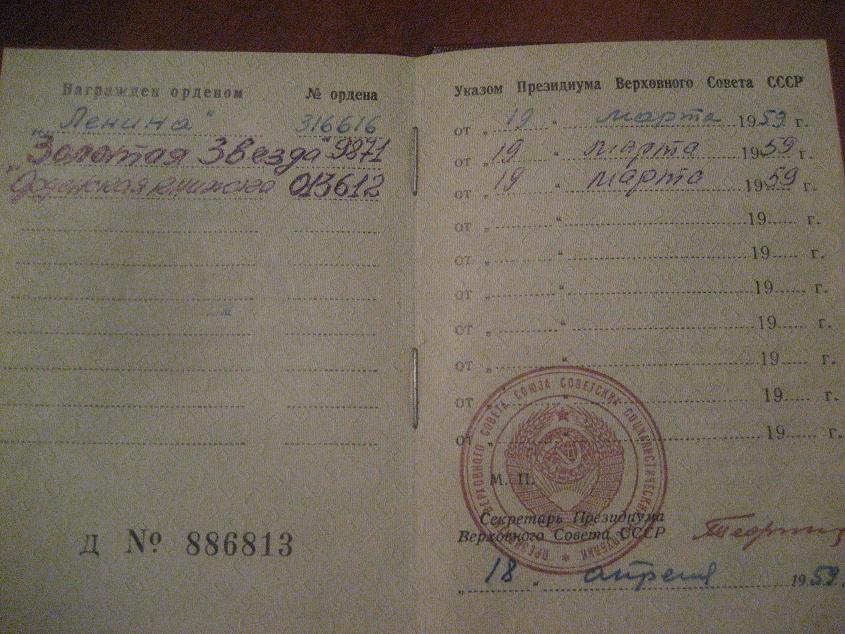 Награжден орденом
№ ордена
„Ленина“ 316616
„Золотая Звезда“ 9871
„Орденская книжка 013612
Д № 886813
Указом Президиума Верховного Совета СССР
от „ 19 “ марта 1959 г.
от „ 19 “ марта 1959 г.
от „ 19 “ марта 1959 г.
от „ “ 19 г.
от „ “ 19 г.
от „ “ 19 г.
от „ “ 19 г.
от „ “ 19 г.
от „ “ 19 г.
от „ “ 19 г.
М. П.
Секретарь Президиума
Верховного Совета СССР
„ 18 “ апреля 1959 г.
ВЕРХОВНОГО СОВЕТА СОЮЗА СОВЕТСКИХ СОЦИАЛИСТИЧЕСКИХ